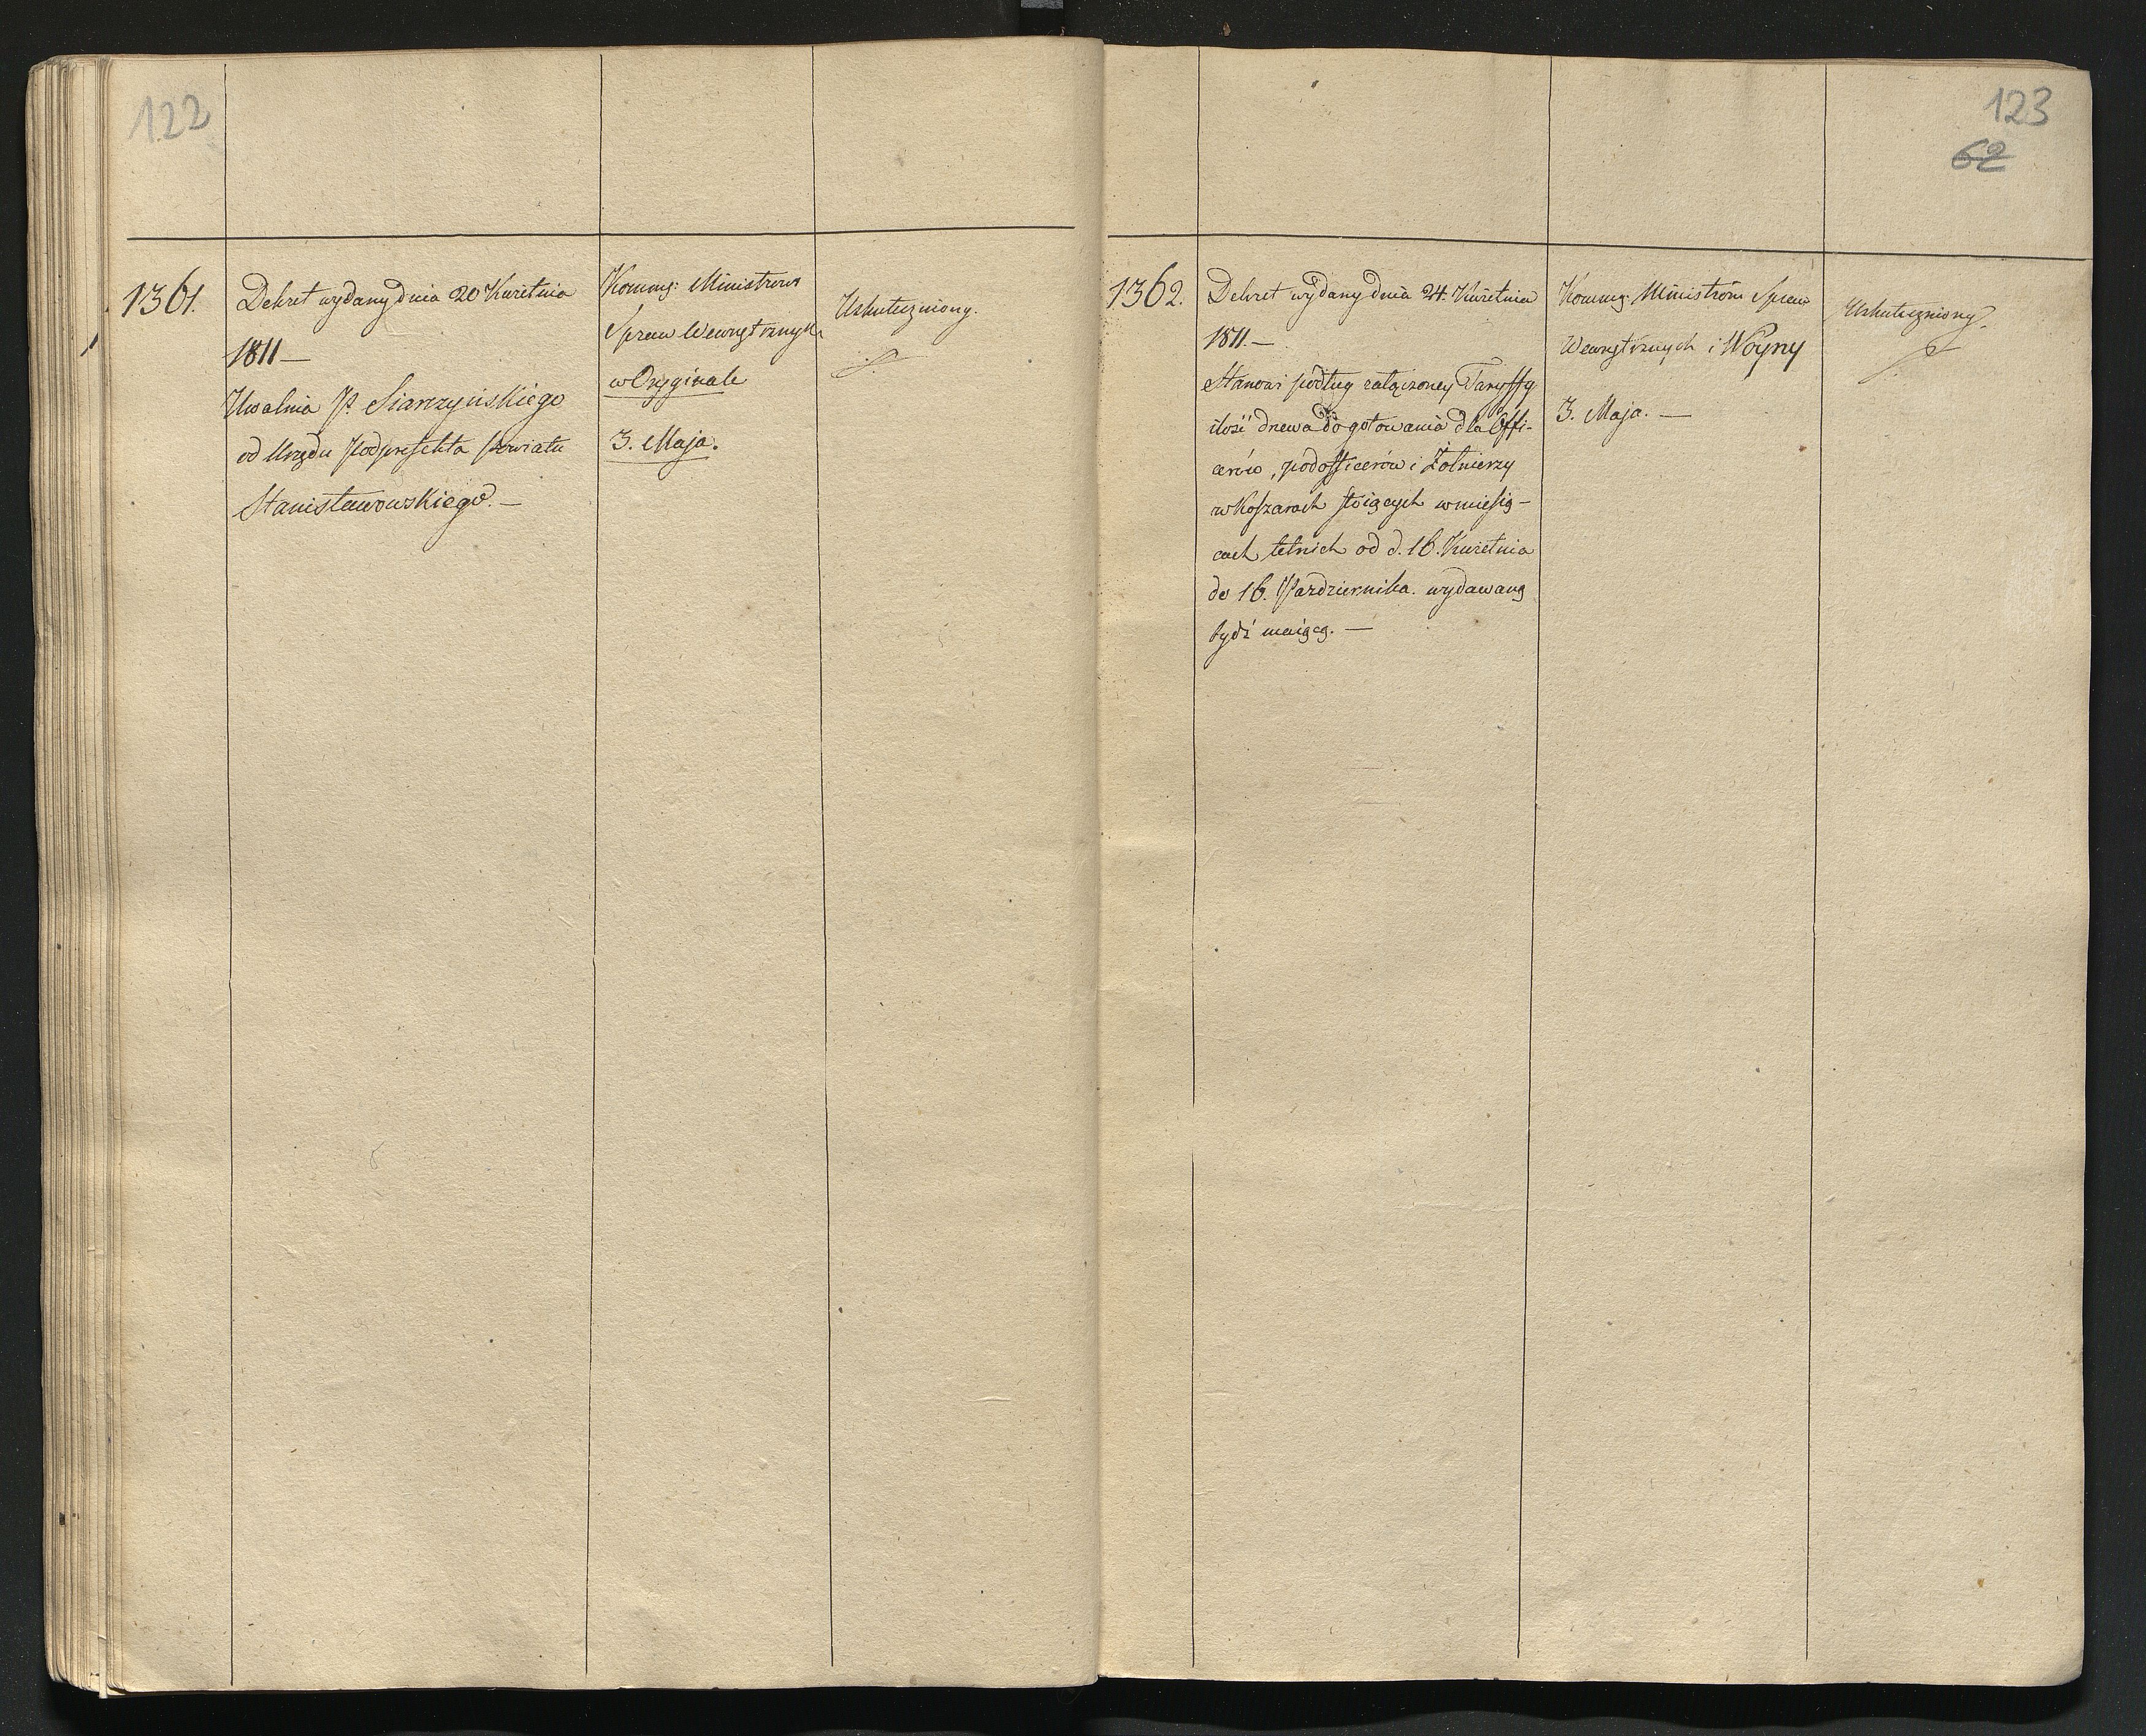 122
1361.
Dekret wydany dnia 20 Kwietnia
1811 —
Uwalnia P. Siarczyńskiego
od Urzędu Podprefekta Powiatu
Stanisławowskiego. —
Kommu: Ministrowi
Spraw Wewnętrznych
w Oryginale
3. Maja.
Uskuteczniony.
123
62
1362.
Dekret wydany dnia 24. Kwietnia
1811. —
Stanowi podług załączoney Taryffy
ilość drzewa do gotowania dla Offi-
cerów, podofficerów i Żołnierzy
w Koszarach stoiących w miesią-
cach letnich od d. 16. Kwietnia
do 16. Pazdziernika wydawaną
bydź maiącą. —
Kommu: Ministróm Spraw
Wewnętrznych i Woyny
3. Maja. —
Uskuteczniony.